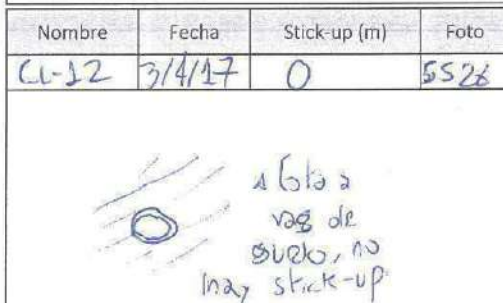 Nombre Fecha Stick-up (m) Foto
CL-12 3/4/17 0 5526
de
suelo, no
hay stick-up